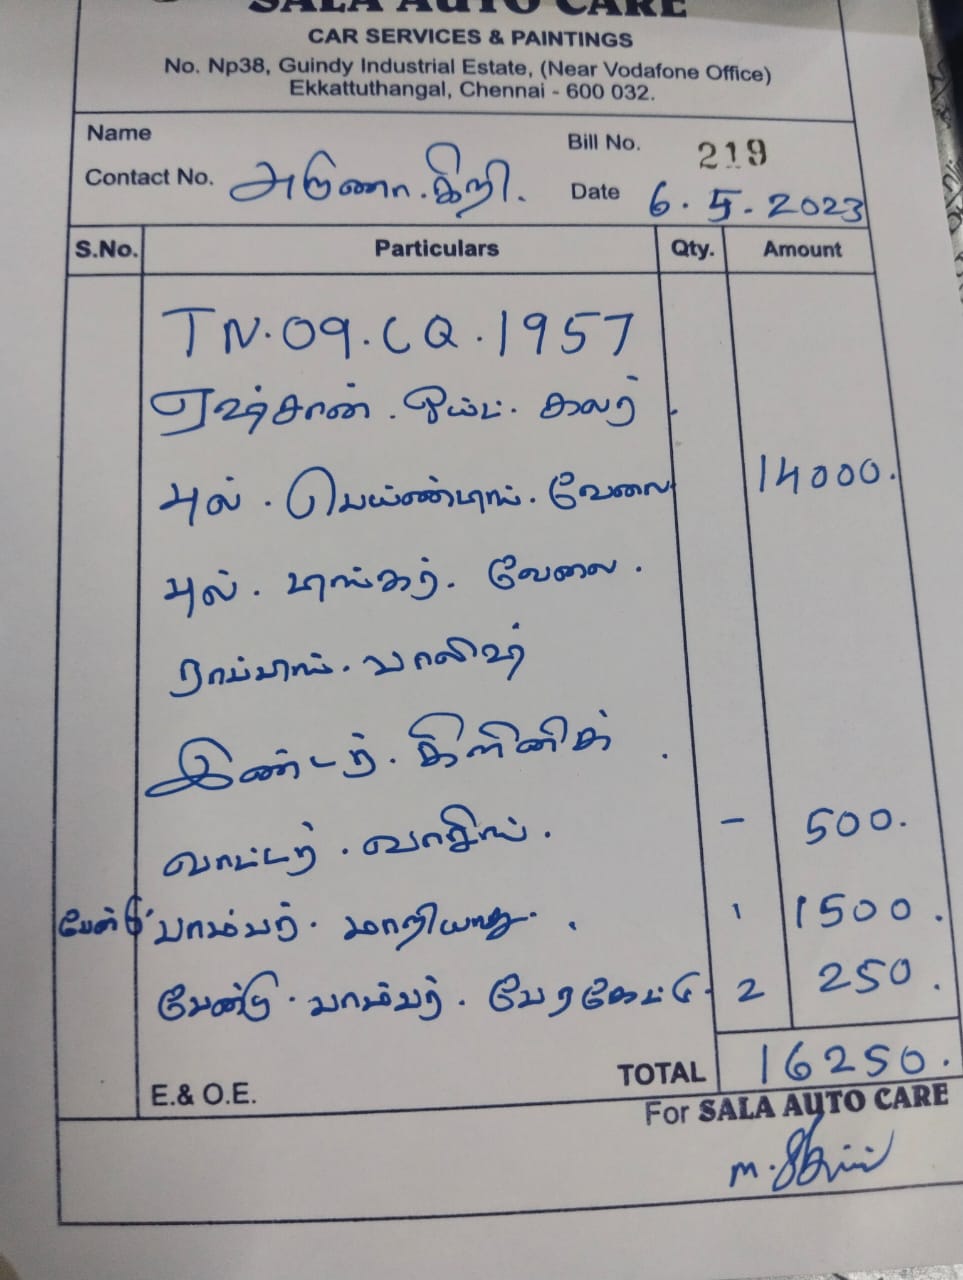 SALA AUTO CARE
CAR SERVICES & PAINTINGS
No. Np38, Guindy Industrial Estate, (Near Vodafone Office)
Ekkattuthangal, Chennai - 600 032.
Name
Bill No. 219
Contact No. அருணா.கிறி.
Date 6.5.2023
S.No. Particulars Qty. Amount
TN.09.CQ.1957
ஏவர்சான். ஒயிட். கலர்
புல். பெயிண்டிங். வேலை 14000.
புல். டிங்கர். வேலை.
ராப்பிங். பாலிஷ்
இண்டர். கிளினிக்
வாட்டர். வாசிங். - 500.
பேன்ட் பாம்பர். மாறியது. 1 1500.
பேண்டு. பாம்பர். பேரகேட்டு. 2 250.
TOTAL 16250.
E.& O.E.
For SALA AUTO CARE